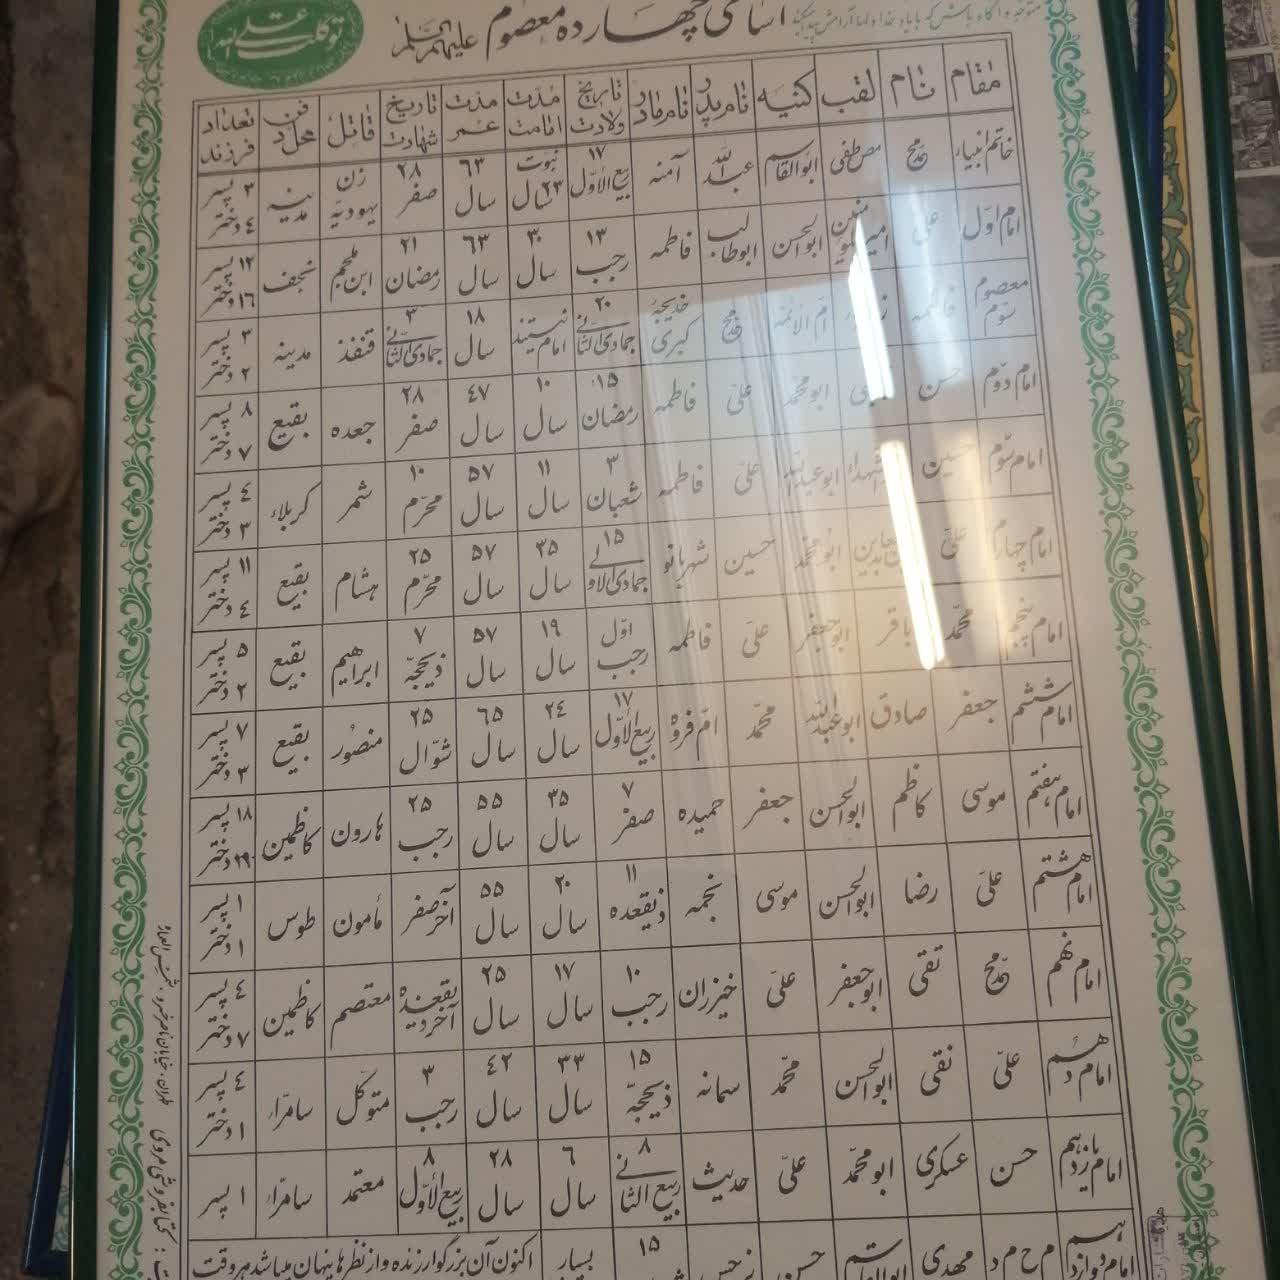 توکلت علی الله
اسامی چهارده معصوم علیهم السلام
مقام نام لقب کنیه نام پدر نام مادر تاریخ ولادت مدت امامت مدت عمر تاریخ شهادت قاتل محل دفن تعداد فرزند
خاتم انبیاء محمد مصطفی ابوالقاسم عبدالله آمنه ۱۷ ربیع الاول نبوت ۲۳ سال ۶۳ سال ۲۸ صفر زن یهودیه مدینه ۳ پسر ۴ دختر
امام اول علی امیرالمؤمنین ابوالحسن ابوطالب فاطمه ۱۳ رجب ۳۰ سال ۶۳ سال ۲۱ رمضان ابن ملجم نجف ۱۲ پسر ۱۶ دختر
معصوم سوم فاطمه ام الائمه محمد خدیجه کبری ۲۰ جمادی الثانی امام نیستند ۱۸ سال ۳ جمادی الثانی قنفذ مدینه ۳ پسر ۲ دختر
امام دوم حسن ابومحمد علی فاطمه ۱۵ رمضان ۱۰ سال ۴۷ سال ۲۸ صفر جعده بقیع ۸ پسر ۷ دختر
امام سوم حسین ابوعبدالله علی فاطمه ۳ شعبان ۱۱ سال ۵۷ سال ۱۰ محرم شمر کربلاء ۴ پسر ۳ دختر
امام چهارم علی ابومحمد حسین شهربانو ۱۵ جمادی الاولی ۳۵ سال ۵۷ سال ۲۵ محرم هشام بقیع ۱۱ پسر ۴ دختر
امام پنجم محمد باقر ابوجعفر علی فاطمه اول رجب ۱۹ سال ۵۷ سال ۷ ذیحجه ابراهیم بقیع ۵ پسر ۲ دختر
امام ششم جعفر صادق ابوعبدالله محمد ام فروه ۱۷ ربیع الاول ۲۴ سال ۶۵ سال ۲۵ شوال منصور بقیع ۷ پسر ۳ دختر
امام هفتم موسی کاظم ابوالحسن جعفر حمیده ۷ صفر ۳۵ سال ۵۵ سال ۲۵ رجب هارون کاظمین ۱۸ پسر ۱۹ دختر
امام هشتم علی رضا ابوالحسن موسی نجمه ۱۱ ذیقعده ۲۰ سال ۵۵ سال آخر صفر مأمون طوس ۱ پسر ۱ دختر
امام نهم محمد تقی ابوجعفر علی خیزران ۱۰ رجب ۱۷ سال ۲۵ سال آخر ذیقعده معتصم کاظمین ۴ پسر ۷ دختر
امام دهم علی نقی ابوالحسن محمد سمانه ۱۵ ذیحجه ۳۳ سال ۴۲ سال ۳ رجب متوکل سامراء ۴ پسر ۱ دختر
امام یازدهم حسن عسکری ابومحمد علی حدیث ۸ ربیع الثانی ۶ سال ۲۸ سال ۸ ربیع الاول معتمد سامراء ۱ پسر
امام دوازدهم م ح م د مهدی ابوالقاسم حسن نرجس ۱۵ بسیار اکنون آن بزرگوار زنده و از نظرها پنهان میباشد هر وقت
کتابفروشی مروی طهران، خیابان ناصرخسرو، شمس العماره